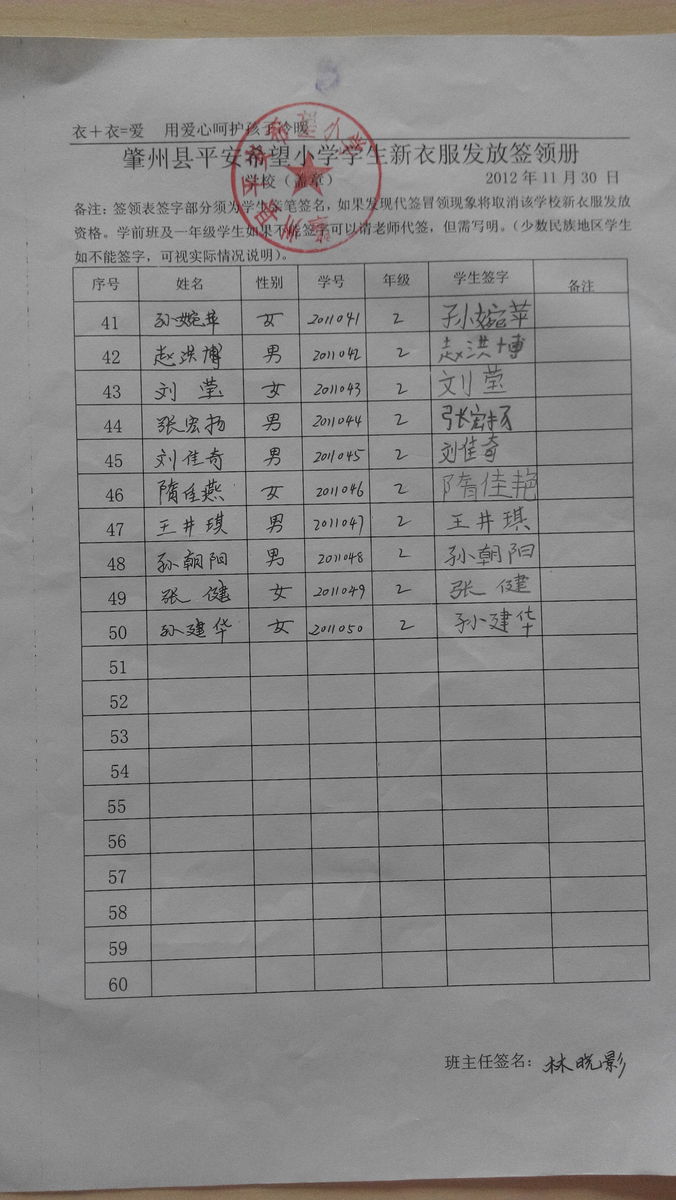 衣＋衣=爱 用爱心呵护孩子冷暖
肇州县平安希望小学学生新衣服发放签领册
学校（盖章） 2012 年 11 月 30 日
备注：签领表签字部分须为学生亲笔签名，如果发现代签冒领现象将取消该学校新衣服发放
资格。学前班及一年级学生如果不能签字可以请老师代签，但需写明。（少数民族地区学生
如不能签字，可视实际情况说明）。
序号 姓名 性别 学号 年级 学生签字 备注
41 孙婉苹 女 2011041 2 孙婉苹
42 赵洪博 男 2011042 2 赵洪博
43 刘莹 女 2011043 2 刘莹
44 张宏扬 男 2011044 2 张宏扬
45 刘佳奇 男 2011045 2 刘佳奇
46 隋佳燕 女 2011046 2 隋佳艳
47 王井琪 男 2011047 2 王井琪
48 孙朝阳 男 2011048 2 孙朝阳
49 张健 女 2011049 2 张健
50 孙建华 女 2011050 2 孙建华
51
52
53
54
55
56
57
58
59
60
班主任签名：林晓影